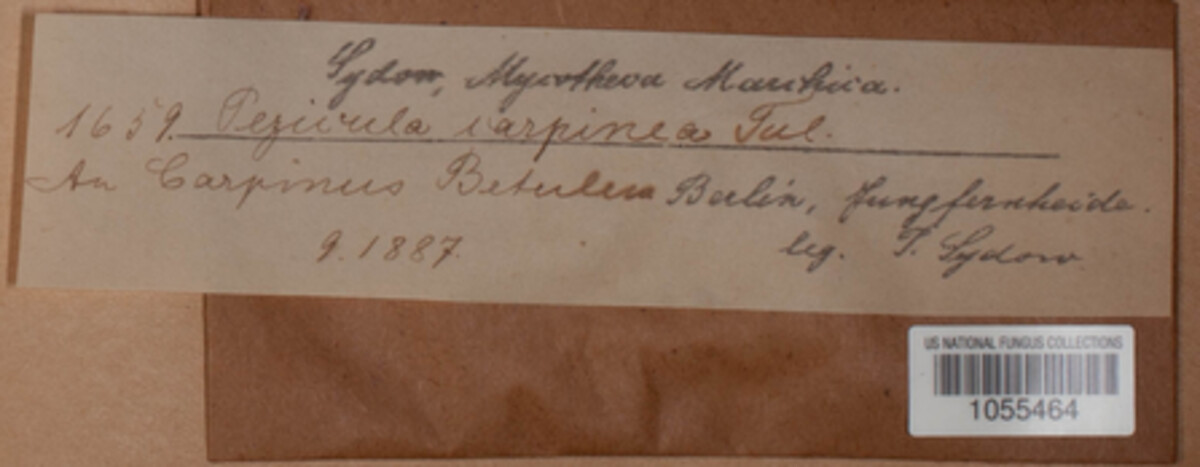 Sydow, Mycotheca Marchica.
1659. Pezicula carpinea Tul.
An Carpinus Betulus Berlin, Jungfernheide.
9. 1887. leg. P. Sydow
US NATIONAL FUNGUS COLLECTIONS
1055464